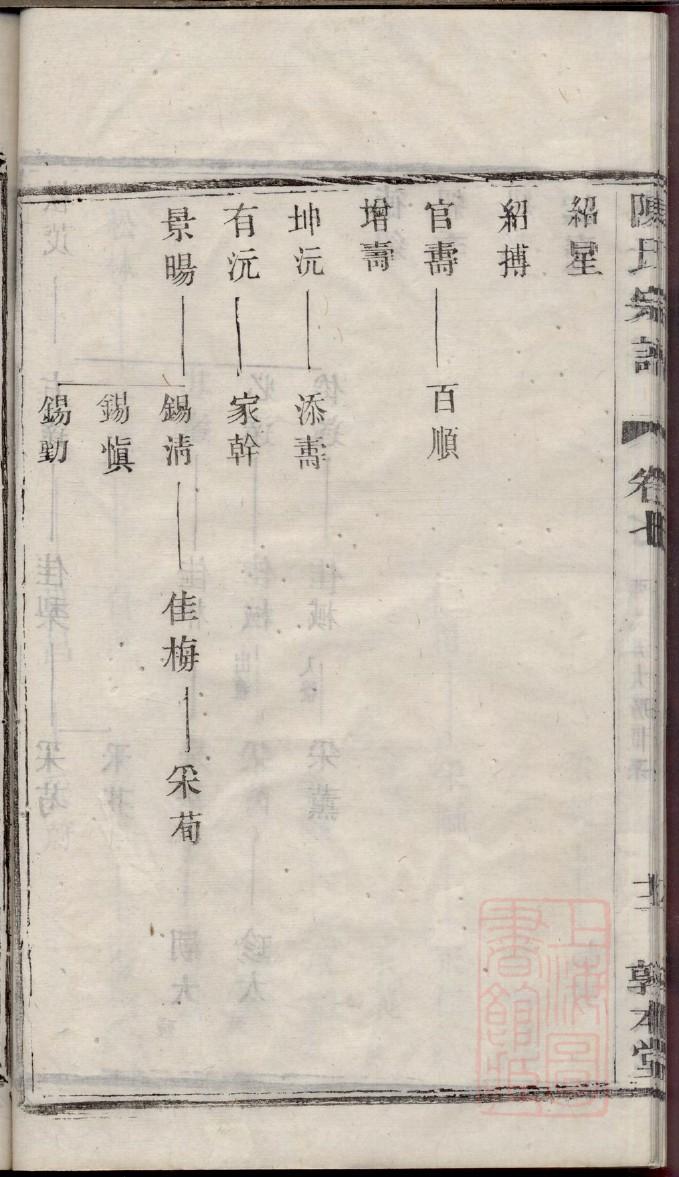 陳氏宗譜 卷七 敦本堂
紹星
紹搏
官壽 百順
增壽
坤沅 添壽
有沅 家幹
景暘 錫清 佳梅 采荀
錫慎
錫勤
上海圖
書館藏